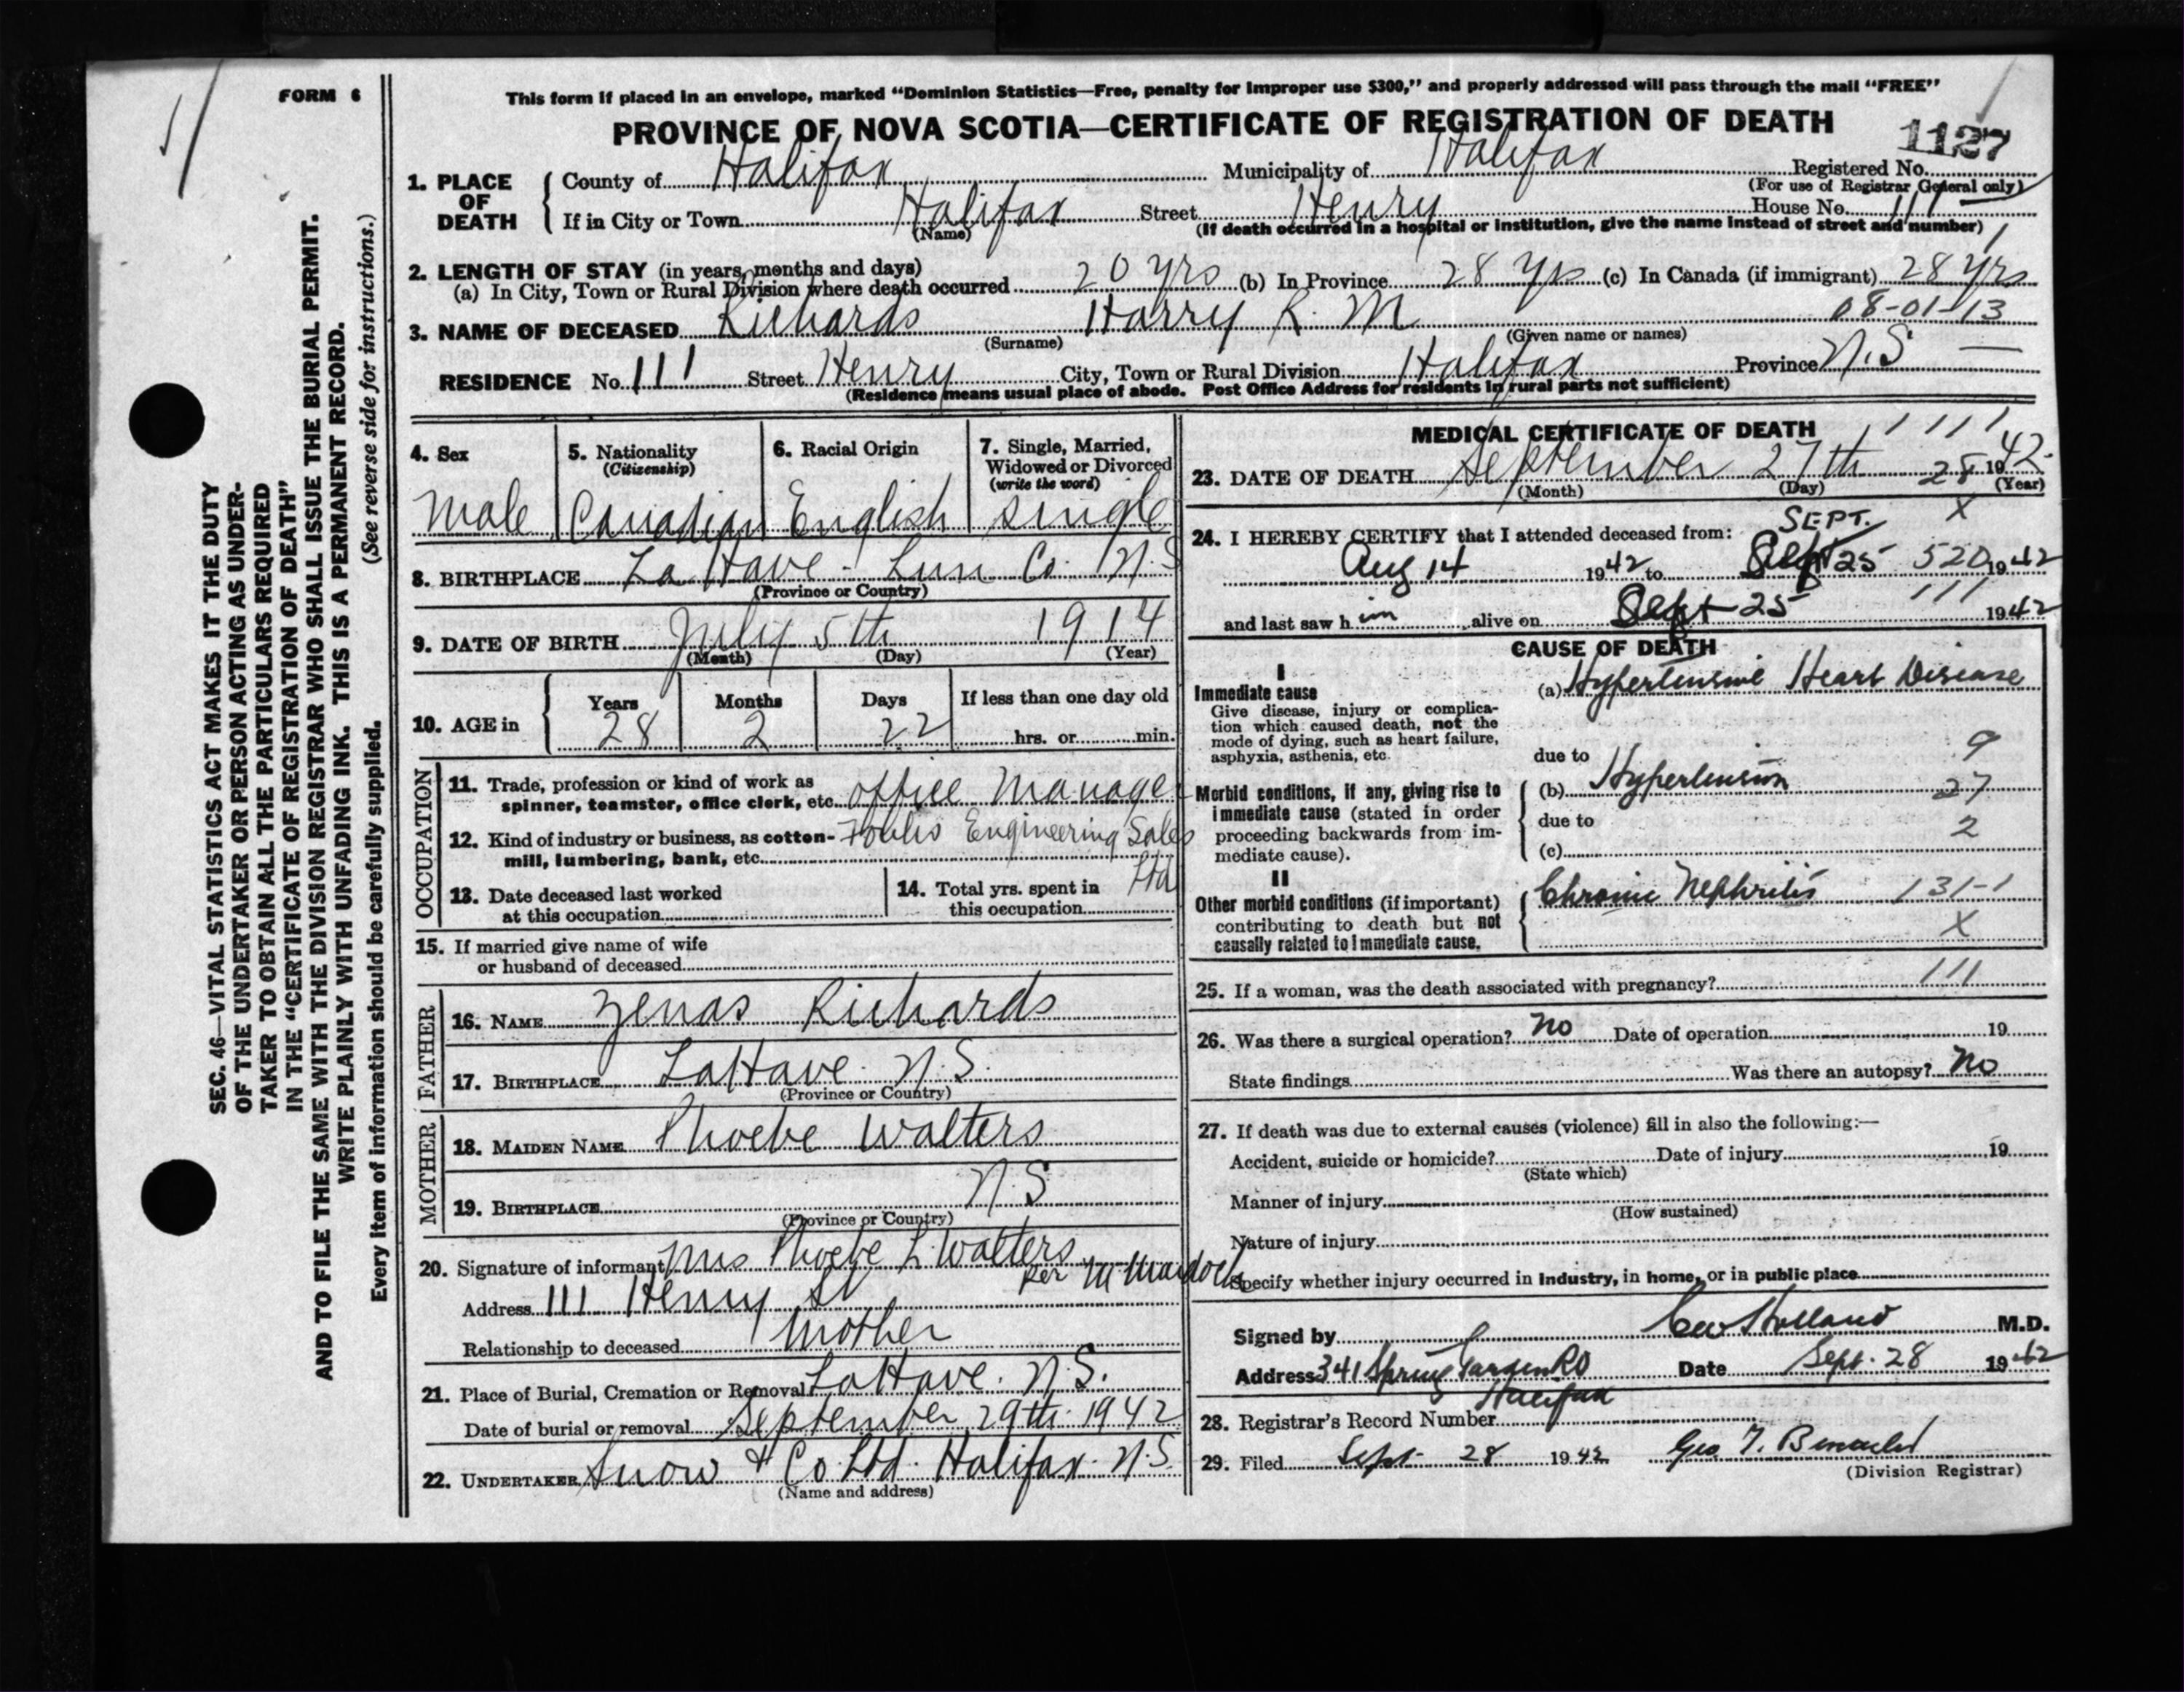 FORM 6
This form if placed in an envelope, marked “Dominion Statistics—Free, penalty for improper use $300,” and properly addressed will pass through the mail “FREE”
PROVINCE OF NOVA SCOTIA—CERTIFICATE OF REGISTRATION OF DEATH
1127
1. PLACE OF DEATH
County of Halifax Municipality of Halifax Registered No.
(For use of Registrar General only)
If in City or Town Halifax Street Henry House No. 111
(Name) (If death occurred in a hospital or institution, give the name instead of street and number)
2. LENGTH OF STAY (in years, months and days)
(a) In City, Town or Rural Division where death occurred 20 yrs (b) In Province 28 yrs (c) In Canada (if immigrant) 28 yrs
08-01-13
3. NAME OF DECEASED Richards Harry R. M
(Surname) (Given name or names)
RESIDENCE No. 111 Street Henry City, Town or Rural Division Halifax Province N.S. —
(Residence means usual place of abode. Post Office Address for residents in rural parts not sufficient)
4. Sex
Male
5. Nationality
(Citizenship)
Canadian
6. Racial Origin
English
7. Single, Married,
Widowed or Divorced
(write the word)
single
8. BIRTHPLACE La Have - Lun Co. N.S
(Province or Country)
9. DATE OF BIRTH July 5th 1914
(Month) (Day) (Year)
10. AGE in
Years Months Days If less than one day old
28 2 22 hrs. or min.
OCCUPATION
11. Trade, profession or kind of work as
spinner, teamster, office clerk, etc. office Manager
12. Kind of industry or business, as cotton-
mill, lumbering, bank, etc. Foulis Engineering Sales
Ltd
13. Date deceased last worked
at this occupation
14. Total yrs. spent in
this occupation
15. If married give name of wife
or husband of deceased
FATHER
16. NAME Zenas Richards
17. BIRTHPLACE LaHave. N.S.
(Province or Country)
MOTHER
18. MAIDEN NAME Phoebe Walters
19. BIRTHPLACE N.S
(Province or Country)
20. Signature of informant Mrs Phoebe L. Walters
per M Murdock
Address 111 Henry St
Relationship to deceased Mother
21. Place of Burial, Cremation or Removal LaHave. N.S.
Date of burial or removal September 29th 1942
22. UNDERTAKER Snow & Co. Ltd. Halifax. N.S.
(Name and address)
MEDICAL CERTIFICATE OF DEATH 1111
23. DATE OF DEATH September 27th 28 1942
(Month) (Day) (Year)
X
24. I HEREBY CERTIFY that I attended deceased from: SEPT.
Aug 14 1942 to Sept 25 520 1942
111
and last saw him alive on Sept 25 1942
CAUSE OF DEATH
I
Immediate cause
Give disease, injury or complica-
tion which caused death, not the
mode of dying, such as heart failure,
asphyxia, asthenia, etc.
(a) Hypertensive Heart Disease
due to 9
Morbid conditions, if any, giving rise to
immediate cause (stated in order
proceeding backwards from im-
mediate cause).
(b) Hypertension 27
due to 2
(c)
II
Other morbid conditions (if important)
contributing to death but not
causally related to immediate cause.
Chronic Nephritis 131-1
X
25. If a woman, was the death associated with pregnancy? 111
26. Was there a surgical operation? No Date of operation 19
State findings Was there an autopsy? No
27. If death was due to external causes (violence) fill in also the following:—
Accident, suicide or homicide? Date of injury 19
(State which)
Manner of injury
(How sustained)
Nature of injury
Specify whether injury occurred in industry, in home, or in public place
Signed by Holland M.D.
Address 341 Spring Garden Rd Date Sept. 28 1942
Halifax
28. Registrar's Record Number
29. Filed Sept 28 1942 Geo
(Division Registrar)
SEC. 46—VITAL STATISTICS ACT MAKES IT THE DUTY
OF THE UNDERTAKER OR PERSON ACTING AS UNDER-
TAKER TO OBTAIN ALL THE PARTICULARS REQUIRED
IN THE “CERTIFICATE OF REGISTRATION OF DEATH”
AND TO FILE THE SAME WITH THE DIVISION REGISTRAR WHO SHALL ISSUE THE BURIAL PERMIT.
WRITE PLAINLY WITH UNFADING INK. THIS IS A PERMANENT RECORD.
Every item of information should be carefully supplied. (See reverse side for instructions.)